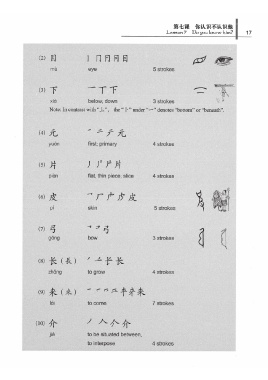 第七课 你认识不认识他
Lesson 7 Do you know him?
17
(2) 目 丨 冂 月 月 目
mù eye 5 strokes
(3) 下 一 丅 下
xià below, down 3 strokes
Note: In contrast with "上", the "卜" under "一" denotes "bottom" or "beneath".
(4) 元 一 二 テ 元
yuán first; primary 4 strokes
(5) 片 丿 丿' 片 片
piàn flat, thin piece; slice 4 strokes
(6) 皮 一 厂 广 皮 皮
pí skin 5 strokes
(7) 弓 ㇕ コ 弓
gōng bow 3 strokes
(8) 长 (長) 丿 一 长 长
zhǎng to grow 4 strokes
(9) 来 (來) 一 一 一 一 平 来 来
lái to come 7 strokes
(10) 介 丿 人 介 介
jiè to be situated between,
to interpose 4 strokes